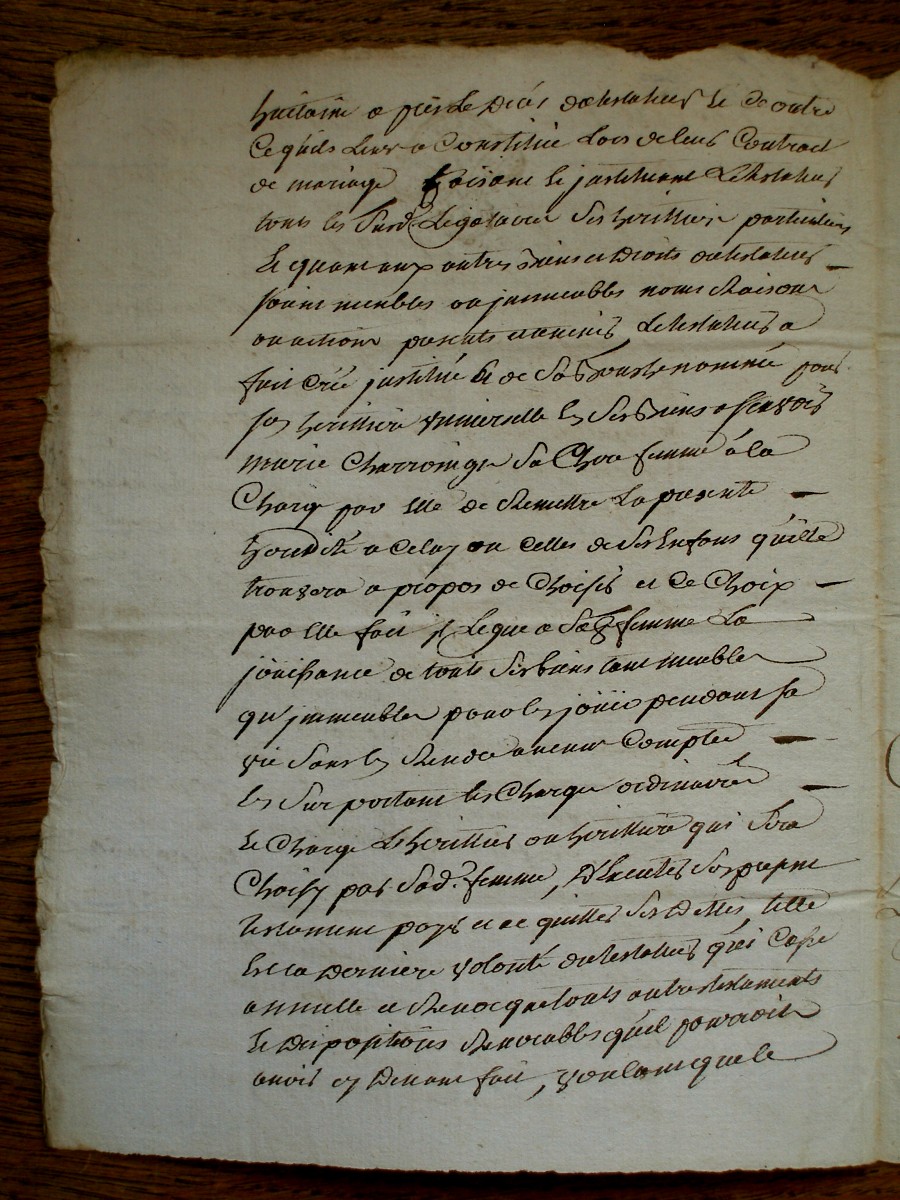 huitaine apres le deces du testateur et de outre
ce quil leur a constitué lors de leur contract
de mariage faisant et instituant le testateur
tous les surd. legataires ses heritiers particuliers
et quant aux autres biens et droits du testateur
soint meubles ou immeubles noms raisons
ou actions presents et avenir le testateur a
fait créé institué et de sa bouche nommé pour
son heritiere universelle en ses biens a scavoir
marie Charroinge sa chere femme a la
charge par elle de remettre la presente
heredité a celuy ou celles de ses enfans quelle
trouvera a propos de choisir et ce choix
par elle fait il legue a sad. femme la
jouissance de touts ses biens tant meubles
qu'immeubles pour les jouir pendant sa
vie sans en rendre aucun compte
en surportant les charges ordinaires
et charge lheritier ou heritiere qui sera
choisy par sad. femme, d'executer son present
testament payer et acquitter ses dettes, telle
est la derniere volonté du testateur qui casse
annulle et revocque touts autres testaments
et dispositions revocables quil pourroit
avoir cy devant fait, voulant que le